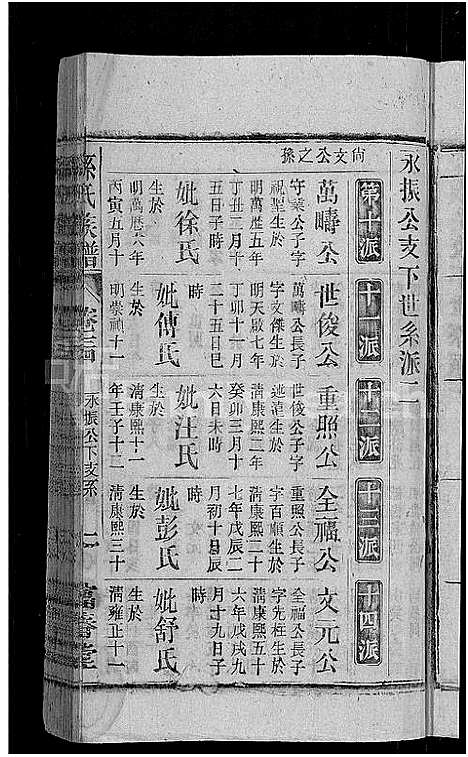 永振公支下世系派二
第十派
十一派
十二派
十三派
十四派
尙文公之孫
萬疇公
守業公子字
祝聖生於
明萬歷五年
丁丑三月十
五日子時
妣徐氏
生於
明萬歷六年
丙寅五月十
世俊公
萬疇公長子
字文傑生於
明天啟七年
丁卯十一月
二十五日巳
時
妣傅氏
生於
明崇禎十一
重照公
世俊公子字
生於
清康熙二年
癸卯三月十
六日未時
妣汪氏
生於
清康熙十一
年壬子十二
全福公
重照公長子
字百順生於
清康熙二十
七年戊辰二
月初十日辰
時
妣彭氏
生於
清康熙三十
文元公
全福公長子
字先柱生於
清康熙五十
六年戊戌九
月十九日子
時
妣舒氏
生於
清雍正十一
孫氏族譜
永振公下支系
一